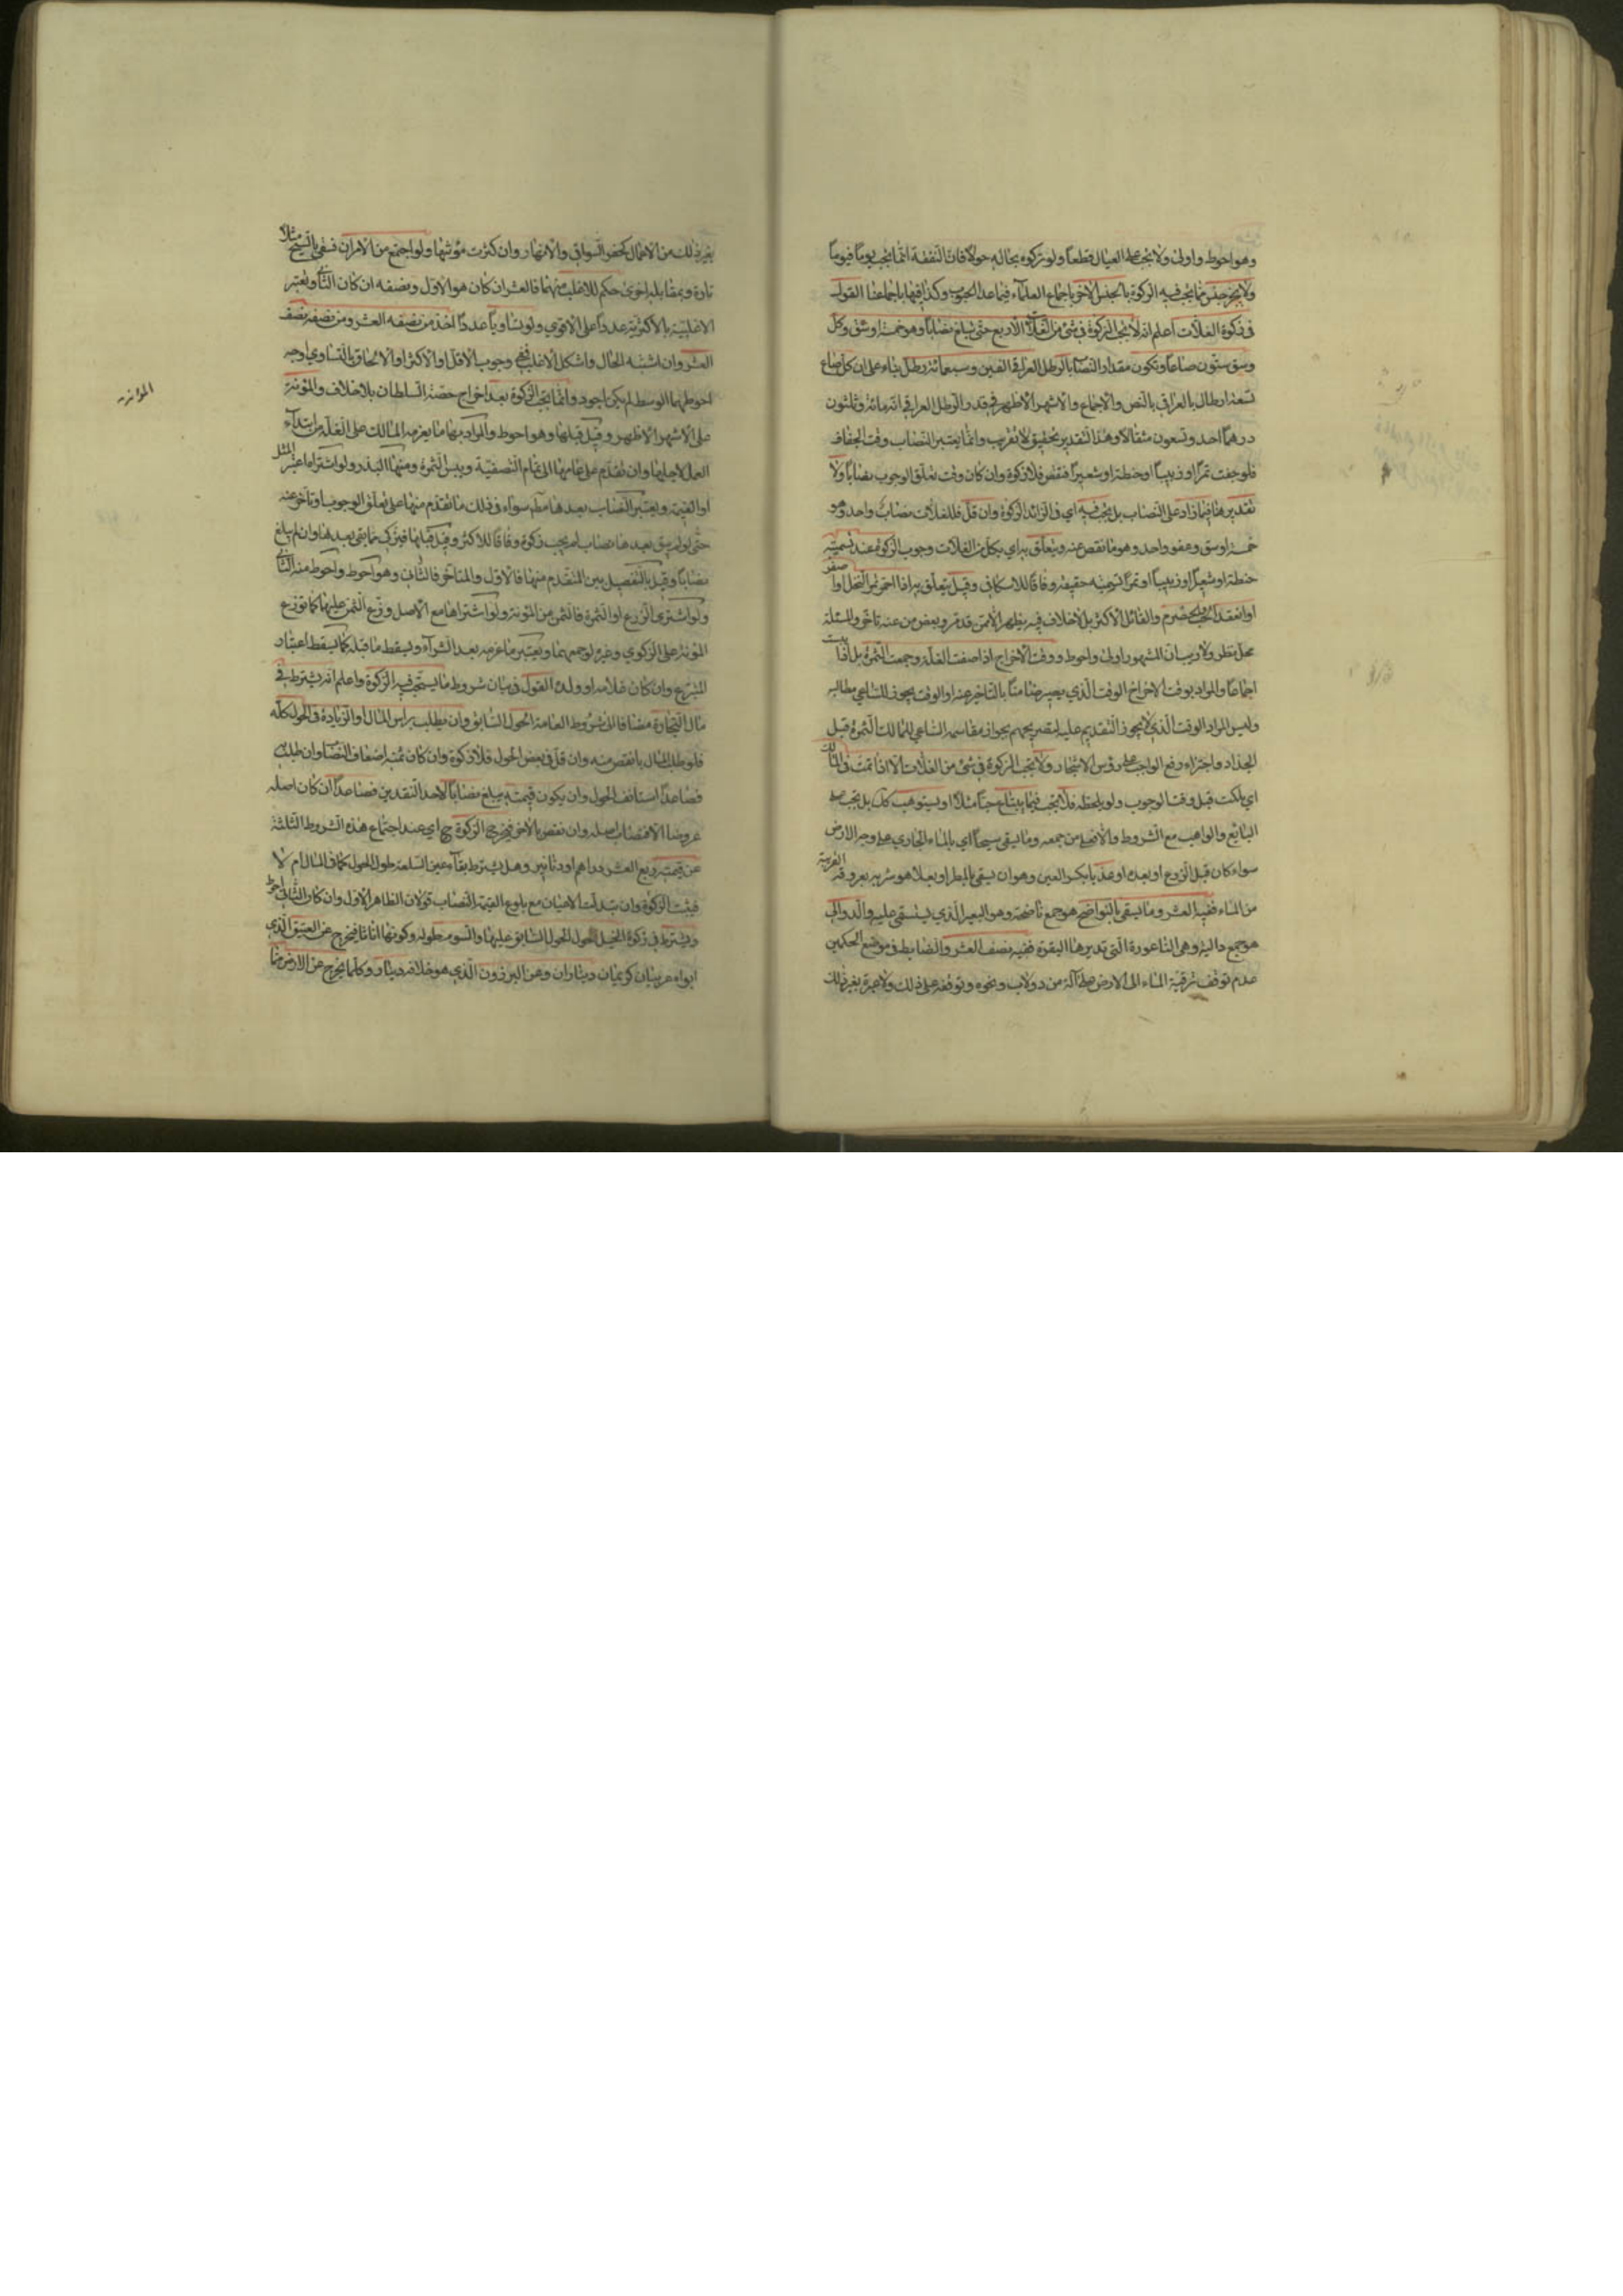 وهو احوط واولى ولا يجب على العيال قطعاً ولو تركوه بحاله حولاً فان النفقة انما يجب يوماً فيوماً
ولا يخرج جنس مما يجب فيه الزكوة بالجنس الاخر باجماع العلماء فيما عدا الحبوب وكذا فيها باجماعنا القول
في زكوة الغلات اعلم انه لا يجب الزكوة في شئ من الغلات الاربع حتى يبلغ نصاباً وهو خمسة اوسق وكل
وسق ستون صاعاً وتكون مقدار النصاب بالرطل العراقي الفين وسبعمائة رطل بناء على ان كل صاع
تسعة ارطال بالعراقي بالنص والاجماع والاشهر الاظهر في قدر الرطل العراقي انه مائة وثلثون
درهماً احد وتسعون مثقالاً وهذا التقدير تحقيق لا تقريب وانما يعتبر النصاب وقت الجفاف
فلو جفت تمراً او زبيباً او حنطة او شعيراً فنقص فلا زكوة وان كان وقت تعلق الوجوب نصاباً ولا
تقدير هنا فيما زاد على النصاب بل يجب فيه اي في الزائد الزكوة وان قل فللغلات نصاب واحد وهو
خمسة اوسق وعفو واحد وهو ما نقص عنه ويتعلق به اي بكل من الغلات وجوب الزكوة عند تسميته
حنطة او شعيراً او زبيباً او تمراً تسمية حقيقة وفاقاً للاسكافي وقيل يتعلق به اذا احمر ثمر النخل او اصفر
او انعقد الحب والحصرم والقائل الاكثر بل لا خلاف فيه يظهر الا ممن قدم وبعض من عنه تاخر والمسئلة
محل نظر ولا ريب ان المشهور اولى واحوط ووقت الاخراج اذا صفت الغلة وجمعت الثمرة بل اذا يبست
اجماعاً والمراد بوقت الاخراج الوقت الذي يصير ضامناً بالتاخير عنه او الوقت يجوز للساعي مطالبه
وليس المراد الوقت الذي لا يجوز التقديم عليه لتصريحهم بجواز مقاسمة الساعي للمالك الثمرة قبل
الجذاذ واجتزاء دفع الواجب على رؤس الاشجار ولا يجب الزكوة في شئ من الغلات الا اذا نمت في المالك
اي ملكت قبل وقت الوجوب ولو بلحظة فلا يجب فيما يبتاع حباً مثلاً او يستوهب كك بل يجب على
البايع والواهب مع الشروط والافعلى من جمعه وما يسقى سيحاً اي بالماء الجاري على وجه الارض
سواء كان قبل الزرع او بعده او عذياً بكسر العين وهو ان يسقى بالمطر او بعلا هو شربه بعروقه القريبة
من الماء ففيه العشر وما يسقى بالنواضح هو جمع ناضحة وهو البعير الذي يستسقى عليه والدوالي
هو جمع دالية وهى الناعورة التي تديرها البقرة ففيه نصف العشر والضابط في موضع الحكمين
عدم توقف ترقية الماء الى الارض على آلة من دولاب ونحوه وتوقفه على ذلك ولا عبرة بغير ذلك
بغير ذلك من الاعمال كحفر السواقي والانهار وان كثرت مؤنتها ولو اجتمع من الامران فسقى بالسيح مثلاً
تارة وبمقابله اخرى حكم للاغلب منهما فالعشر ان كان هو الاول ونصفه ان كان الثاني ويعتبر
الاغلبية بالاكثرية عدداً على الاقوى ولو تساويا عدداً اخذ من نصفه العشر ومن نصفه نصف
العشر وان اشتبه الحال واشكل الاغلب ففي وجوب الاقل او الاكثر او الالحاق بالتساوي اوجه
احوطها الوسط لم يكن اجود وانما يجب الزكوة بعد اخراج حصة السلطان بلا خلاف والمؤنة
على الاشهر الاظهر وقيل قبلها وهو احوط والمراد بها ما يغرمه المالك على الغلة من ابتداء
العمل لاجلها وان تقدم على عامها الى تمام التصفية ويبس الثمرة ومنها البذر ولو اشتراه اعتبر المثل
او القيمة ويعتبر النصاب بعدها مط سواء في ذلك ما تقدم منها على تعلق الوجوب او تاخر عنه
حتى لو لم يبق بعدها نصاب لم يجب زكوة وفاقاً للاكثر وقيل قبلها فيزكى ما بقى بعدها وان لم يبلغ
نصاباً وقيل بالتفصيل بين المتقدم منها فالاول والمتاخر فالثاني وهو احوط واحوط منه الثاني
ولو اشترى الزرع او الثمرة فالثمن من المؤنة ولو اشتراها مع الاصل وزع الثمن عليهما كما توزع
المؤنة على الزكوي وغيره لو جمعهما ويعتبر ما غرمه بعد الشراء ويسقط ما قبله كما يسقط اعتبار
المتبرع وان كان غلامه او ولده القول في بيان شروط ما يستحب فيه الزكوة واعلم انه يشترط في
مال التجارة مضافا الى شروط العامة الحول السابق وان يطلب براس المال او الزيادة في الحول كله
فلو طلب المال بانقص منه وان قل في بعض الحول فلا زكوة وان كان ثمنه اضعاف النصاب وان طلب
فصاعداً استانف الحول وان يكون قيمته يبلغ نصاباً لاحد النقدين فصاعداً ان كان اصله
عروضا الا فنصاب اصله وان نقص بالاخر فيخرج الزكوة ح اي عند اجتماع هذه الشروط الثلثة
عن قيمته ربع العشر دراهم او دنانير وهل يشترط بقاء عين السلعة طول الحول كما في المال ام لا
فيثبت الزكوة وان تبدلت الاعيان مع بلوغ القيمة النصاب قولان الظاهر الاول وان كان الثاني احوط
ويشترط في زكوة الخيل الحول السابق عليها والسوم طوله وكونها اناثا فيخرج عن العتيق الذي
ابواه عربيان كريمان ديناران وعن البرذون الذي هو خلافه دينار وكلما يخرج عن الارض مما
المؤنة